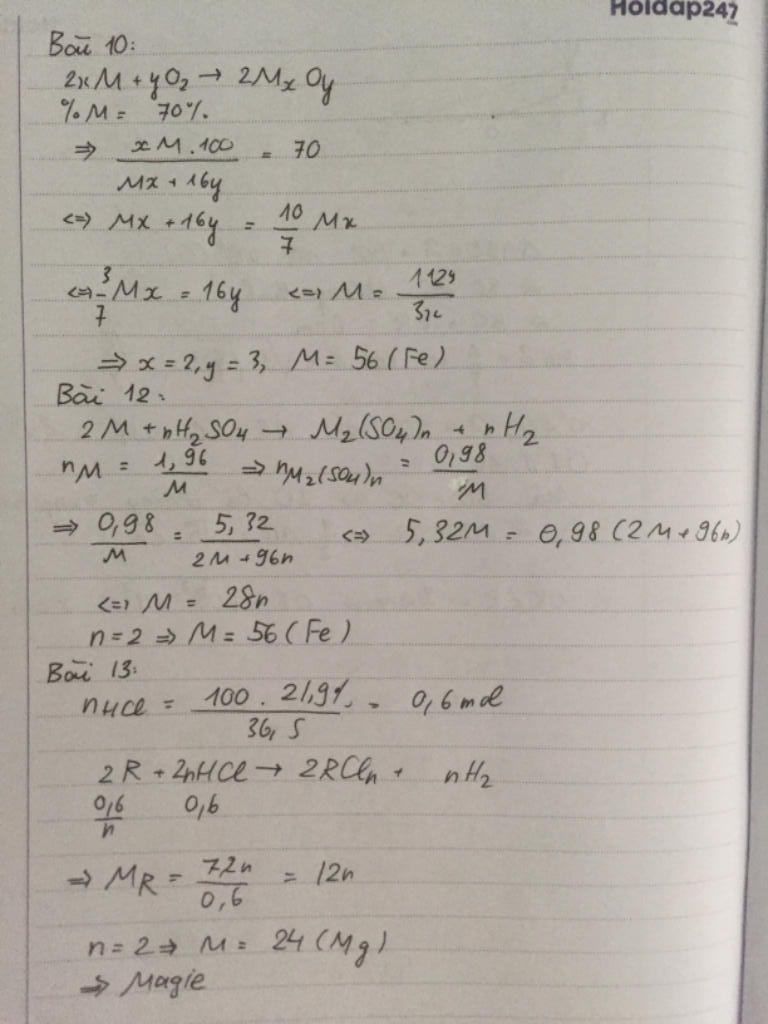 Hoidap247
Bài 10:
2xM + yO2 → 2MxOy
%M = 70%
⇒ xM.100 / Mx + 16y = 70
<=> Mx + 16y = 10/7 Mx
<=> 3/7 Mx = 16y <=> M = 112y/3x
⇒ x = 2, y = 3, M = 56 (Fe)
Bài 12:
2M + nH2SO4 → M2(SO4)n + nH2
nM = 1,96/M ⇒ nM2(SO4)n = 0,98/M
⇒ 0,98/M = 5,32/2M + 96n <=> 5,32M = 0,98(2M + 96n)
<=> M = 28n
n = 2 ⇒ M = 56 (Fe)
Bài 13:
nHCl = 100 . 21,9% / 36,5 = 0,6 mol
2R + 2nHCl → 2RCln + nH2
0,6/n 0,6
⇒ MR = 7,2n/0,6 = 12n
n = 2 ⇒ M = 24 (Mg)
⇒ Magie